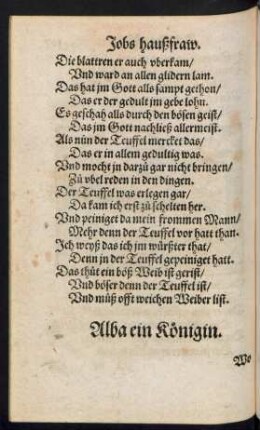 Jobs haußfraw.
Die blattren er auch vberkam/
Vnd ward an allen glidern lam.
Das hat jm Gott alls sampt gethon/
Das er der gedult jm gebe lohn.
Es geschah alls durch den bösen geist/
Das jm Gott nachließ allermeist.
Als nůn der Teuffel mercket das/
Das er in allem gedultig was.
Vnd mocht jn darzů gar nicht bringen/
Zů vbel reden in den dingen.
Der Teuffel was erlegen gar/
Da kam ich erst zů schelten her.
Vnd peiniget da mein frommen Mann/
Mehr denn der Teuffel vor hatt than.
Ich weyß das ich jm würßter that/
Denn in der Teuffel gepeiniget hatt.
Das thůt ein böß Weib ist gerist/
Vnd böser denn der Teuffel ist/
Vnd můß offt weichen Weiber list.
Alba ein Königin.
We